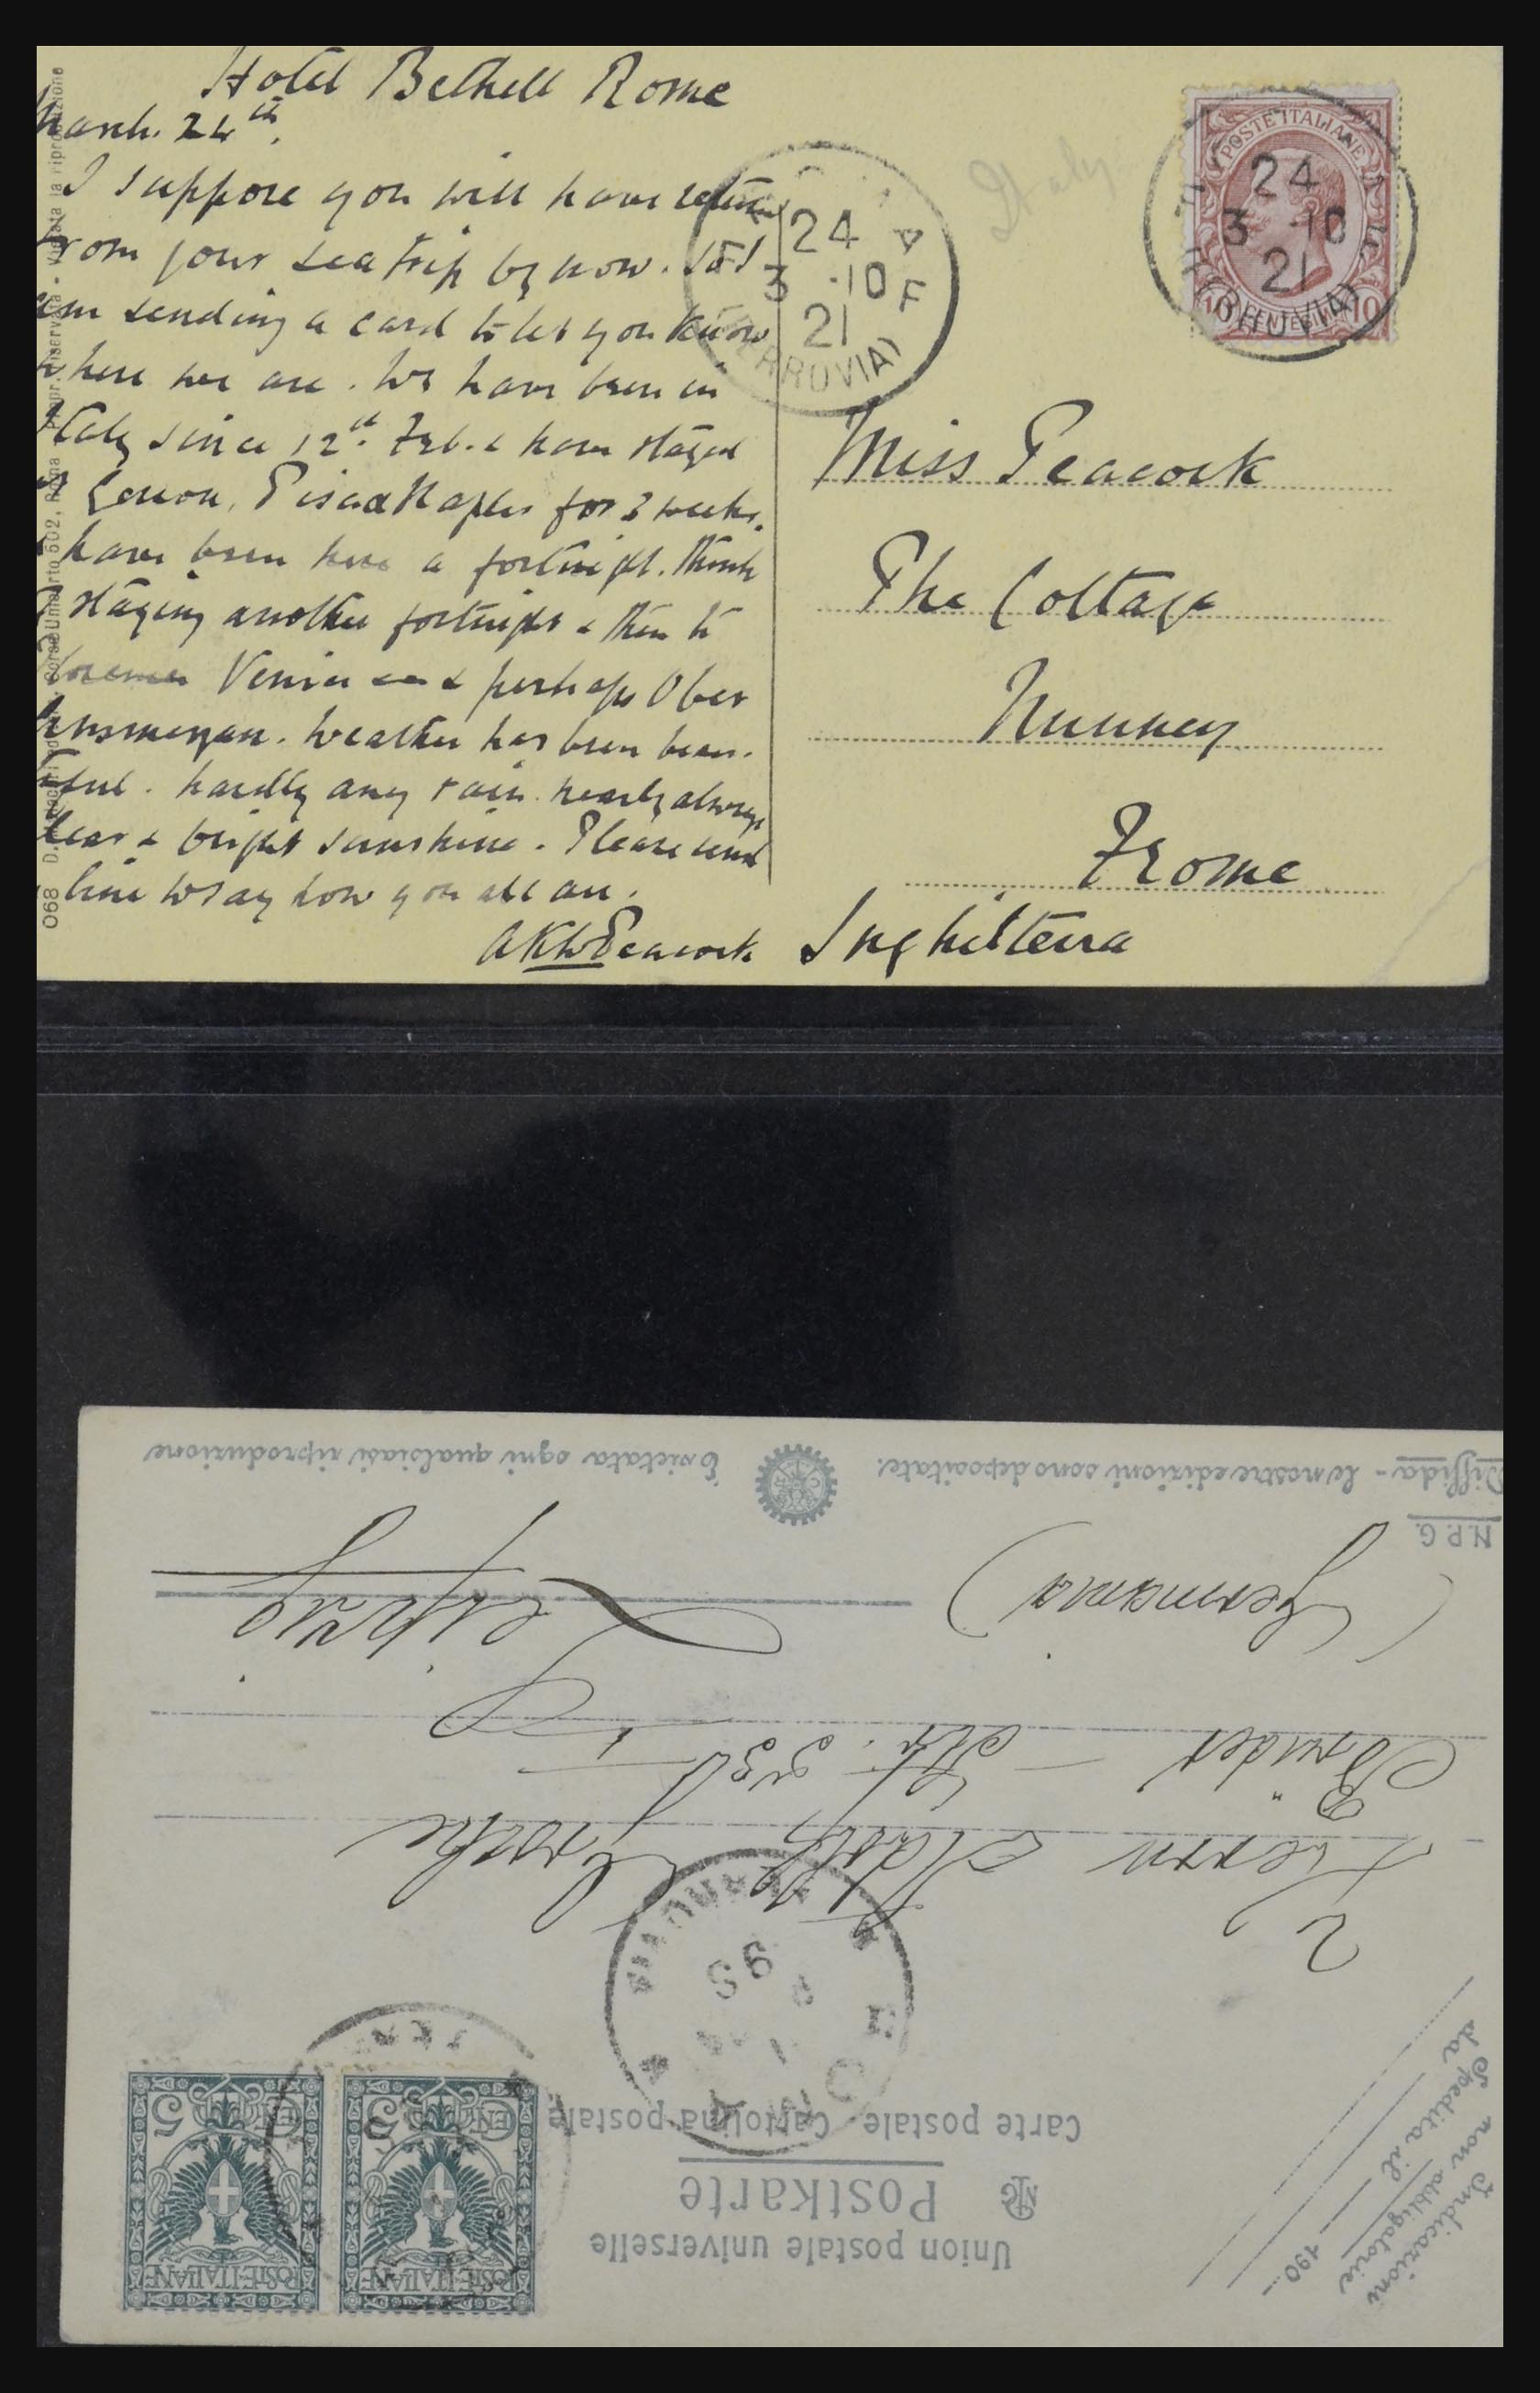 Hotel Bethell Rome
March. 24th.
I suppose you will have
from your sea trip by now. So I
am sending a card to let you know
where we are. We have been in
Italy since 12th. Feb. & have stayed
Genoa, Pisa & Naples for 3 weeks.
have been here a fortnight. Think
staying another fortnight & then to
Venice & perhaps Ober
. Weather has been beau-
tiful. hardly any rain. nearly always
clear & bright sunshine. Please send
line to say how you all are.
Peacock
068 Corso Umberto 502, Roma Propr. riservata - Vietata la riproduzione
Italy
24
3 · 10
21
(FERROVIA)
POSTE ITALIANE
24
3 · 10
21
(FERROVIA)
10 10
Miss Peacock
The Cottage
Nunney
Frome
Inghilterra
Indicazioni
non obbligatorie
Spedita il
da
190
Union postale universelle
Postkarte
Carte postale - Cartolina postale
POSTE·ITALIANE
CEN 5
POSTE·ITALIANE
CEN 5
Adolf
Brüder
(Germania)
Leipzig
N.P.G.
Diffida - le nostre edizioni sono depositate.
È vietata ogni qualsiasi riproduzione